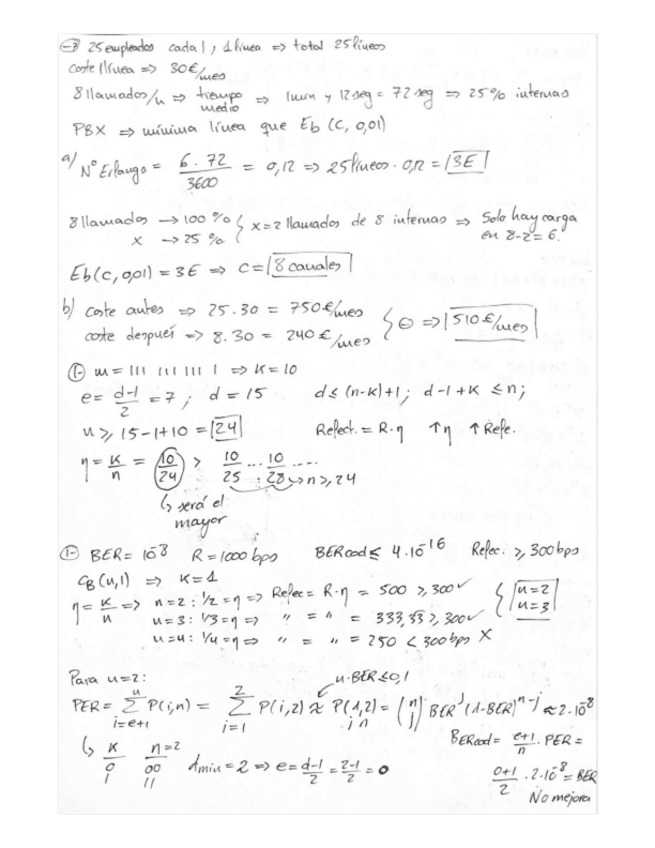 → 25 empleados cada 1, 1 línea ⇒ total 25 líneas
coste 1 línea ⇒ 30€/mes
8 llamadas/h ⇒ tiempo medio ⇒ 1 min y 12 seg = 72 seg ⇒ 25% internas
PBX ⇒ mínima línea que Eb (C, 0,01)
a/ Nº Erlangs = 6·72/3600 = 0,12 ⇒ 25 líneas · 0,12 = 3E
8 llamadas → 100 % } x = 2 llamadas de 8 internas ⇒ Solo hay carga
x → 25 % en 8-2 = 6.
Eb (C, 0,01) = 3E ⇒ C = 8 canales
b) coste antes ⇒ 25·30 = 750€/mes } ⊖ ⇒ 510€/mes
coste después ⇒ 8·30 = 240€/mes
1- m = 111 111 111 1 ⇒ K = 10
e = d-1/2 = 7 ; d = 15 d ≤ (n-K)+1 ; d-1+K ≤ n;
n ≥ 15-1+10 = 24 Refect. = R·η ↑η ↑Refe.
η = K/n = 10/24 > 10/25 ... 10/28 ..... → n ≥ 24
↳ será el
mayor
1- BER = 10^-8 R = 1000 bps BERcod ≤ 4·10^-16 Refec. ≥ 300 bps
CB (n,1) ⇒ K = 1
η = K/n ⇒ n=2 : 1/2 = η ⇒ Refec = R·η = 500 ≥ 300 ✓ { n=2
n=3 : 1/3 = η ⇒ " = " = 333,33 ≥ 300 ✓ n=3
n=4 : 1/4 = η ⇒ " = " = 250 < 300 bps X
Para n=2: n·BER ≤ 0,1
PER = Σ(i=e+1, n) P(i,n) = Σ(i=1, 2) P(i,2) ≈ P(1,2) = (n j) BER^j (1-BER)^n-j ≈ 2·10^-8
j n
BERcod = e+1/n · PER =
↳ K n=2
0 00 dmin = 2 ⇒ e = d-1/2 = 2-1/2 = 0
1 11
0+1/2 · 2·10^-8 = BER
No mejora